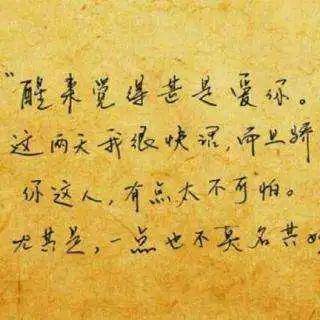 “醒来觉得甚是爱你。
这两天我很快活,而且骄
你这人,有点太不可怕。
尤其是,一点也不莫名其